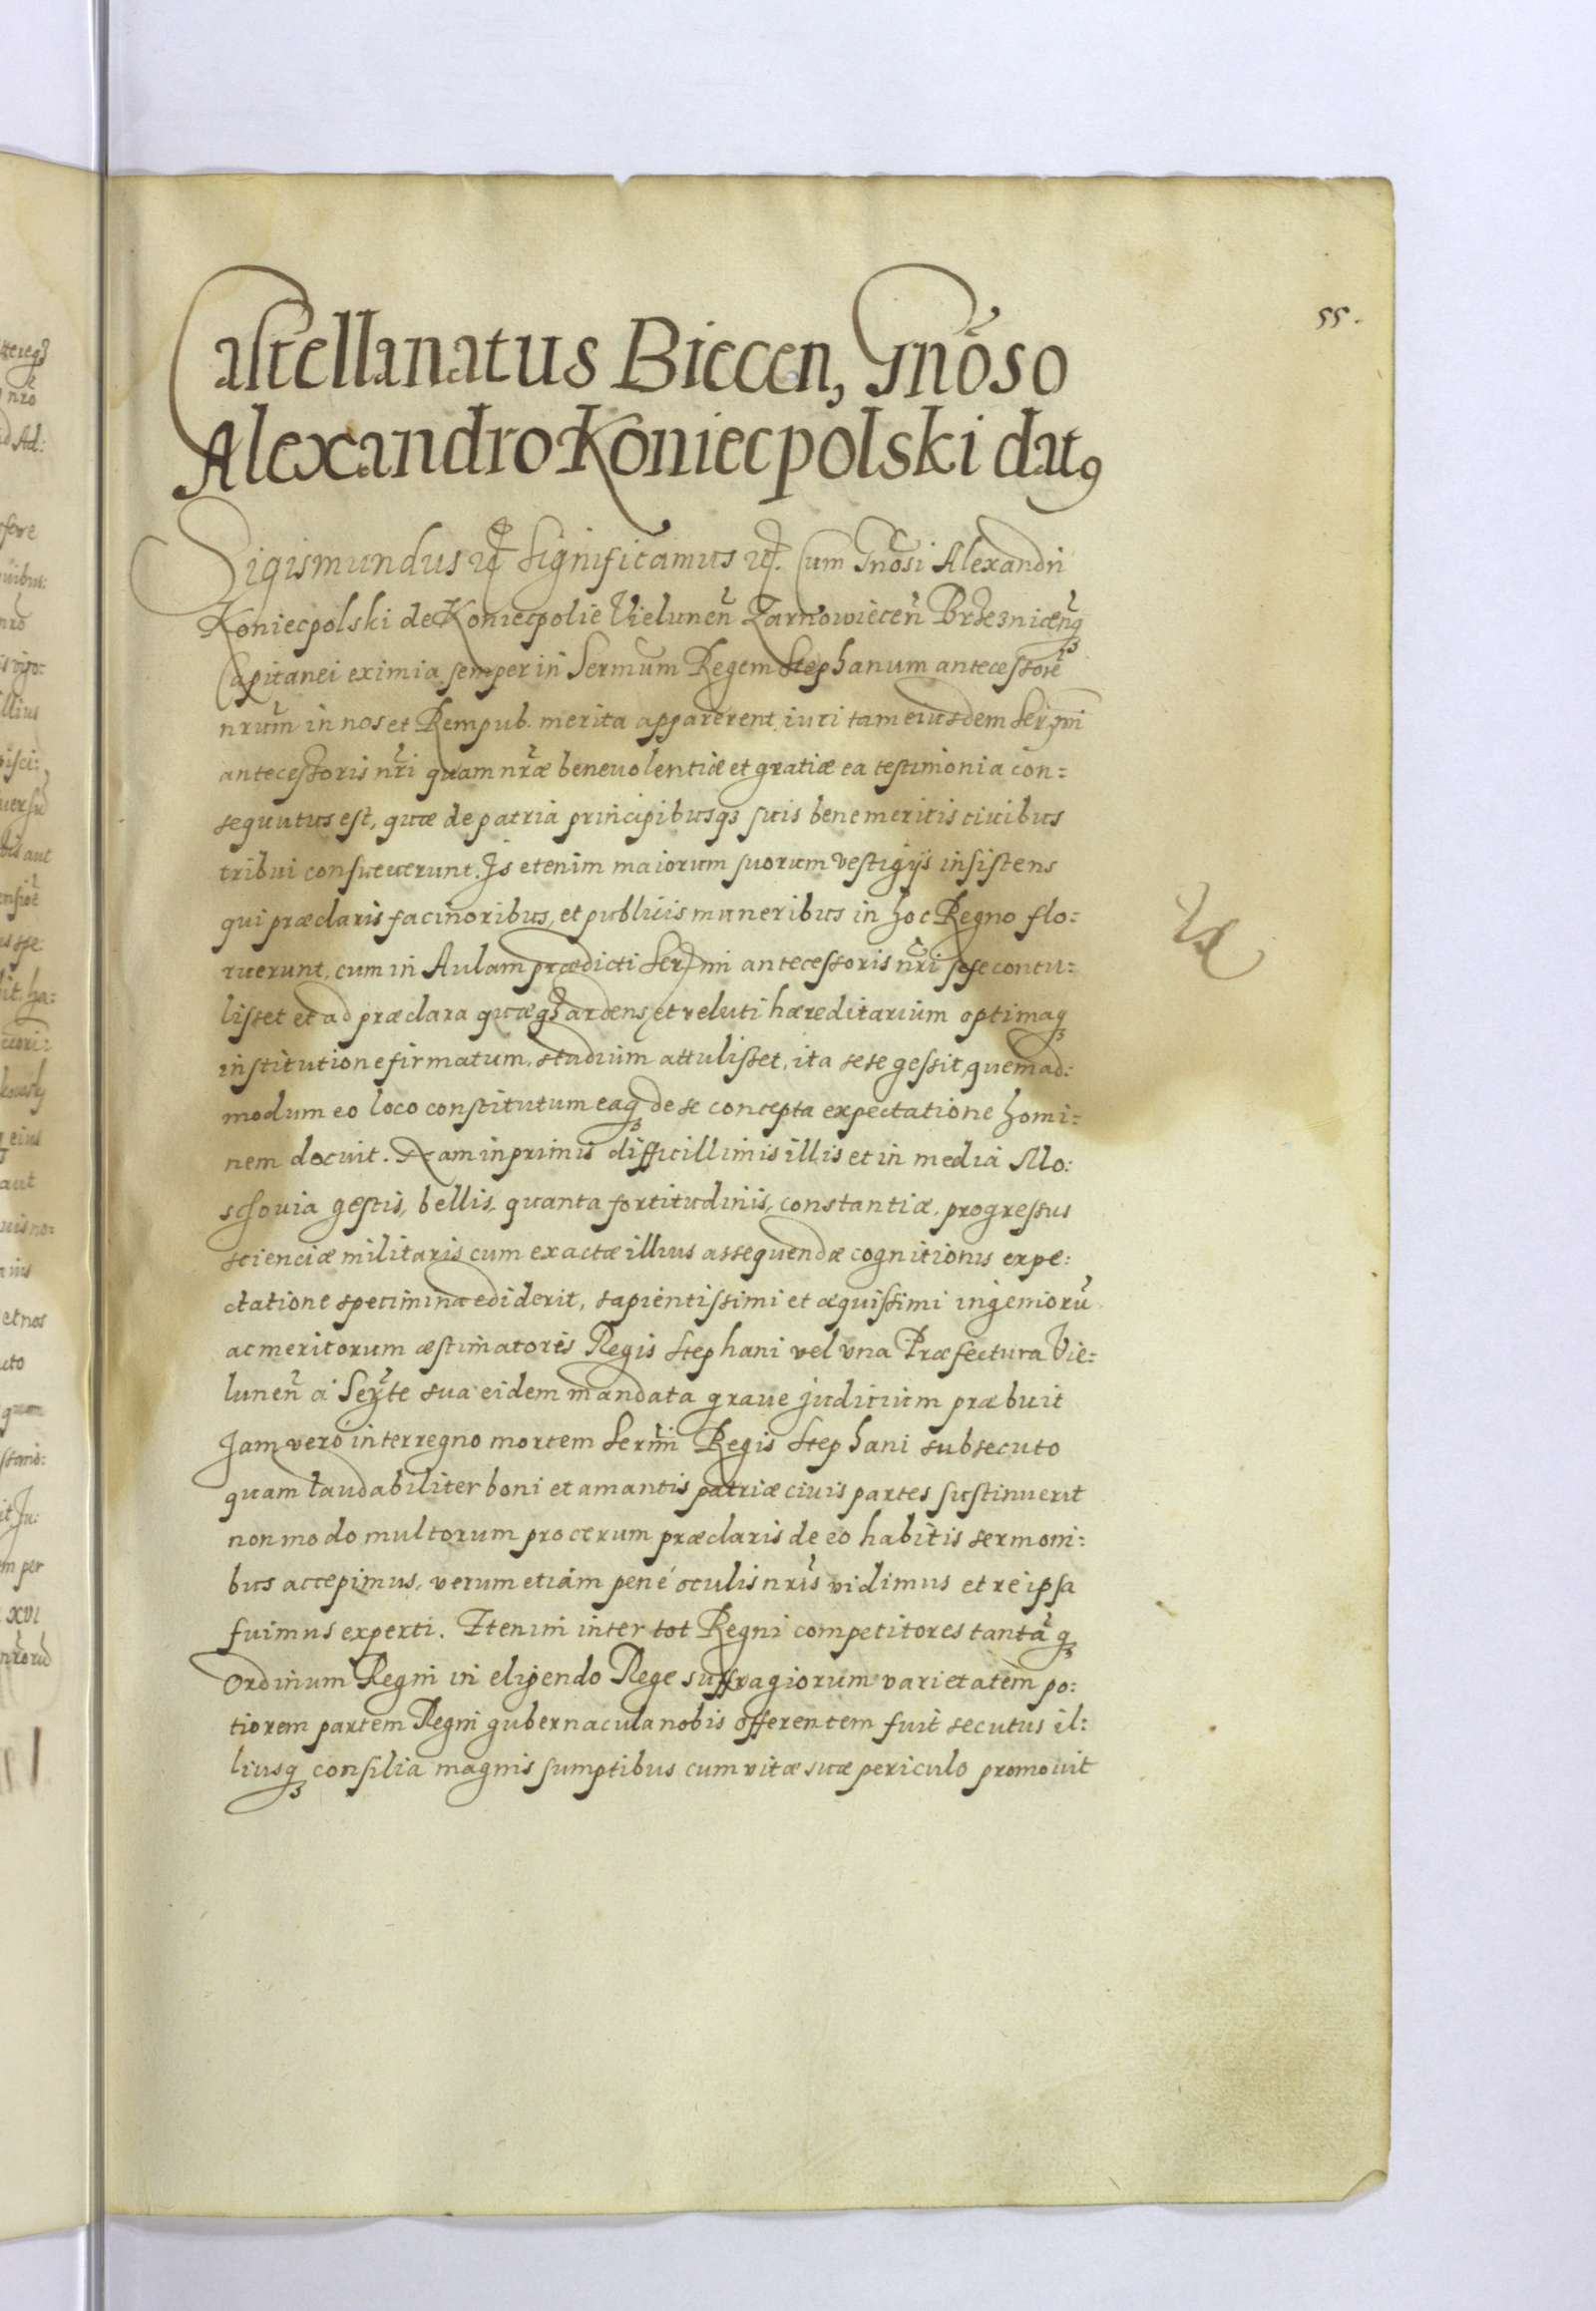 55.
Castellanatus Biecen, Gnoso
Alexandro Koniecpolski datꝰ
Sigismundus etc Significamus etc. Cum Gnosi Alexandri
Koniecpolski de Koniecpolie Vielunen̄ Zarnowiecen̄ Brzeznicen̄q₃
Capitanei eximia semper in Sermum Regem Stephanum antecessorē
nrūm in nos et Rempub. merita apparerent, iuri tam eiusdem Sermi
antecessoris nr̄i quam nr̄æ beneuolentiæ et gratiæ ea testimonia con=
sequutus est, quæ de patria principibusq₃ suis bene meritis ciuibus
tribui consueuerunt. Is etenim maiorum suorum vestigijs insistens
qui præclaris facinoribus, et publicis muneribus in hoc Regno flo=
ruerunt, cum in Aulam prædicti Sermi antecessoris nr̄i sese contu=
lisset et ad præclara quæq₃ ardens, et veluti hæreditarium optimaq₃
institutione firmatum, studium attulisset, ita sese gessit, quemad=
modum eo loco constitutum eaq₃ de se concepta expectatione homi=
nem decuit. Nam inprimis difficillimis illis et in media Mo=
schouia gestis, bellis, quanta fortitudinis, constantiæ, progressus
scienciæ militaris cum exactæ illius assequendæ cognitionis expe=
ctatione specimina ediderit, sapientissimi et æquissimi ingeniorū
ac meritorum æstimatoris Regis Stephani vel vna Præfectura Vie=
lunen̄ a Serte sua eidem mandata graue judicium præbuit
Jam verò interregno mortem Sermi Regis Stephani subsecuto
quam laudabiliter boni et amantis patriæ ciuis partes sustinuerit
non modo multorum procerum præclaris de eo habitis sermoni=
bus accepimus, verum etiam penè oculis nrīs vidimus et re ipsa
fuimus experti. Etenim inter tot Regni competitores tantāq₃
Ordinum Regni in eligendo Rege suffragiorum varietatem po=
tiorem partem Regni gubernacula nobis offerentem fuit secutus il=
liusq₃ consilia magnis sumptibus cum vitæ suæ periculo promouit